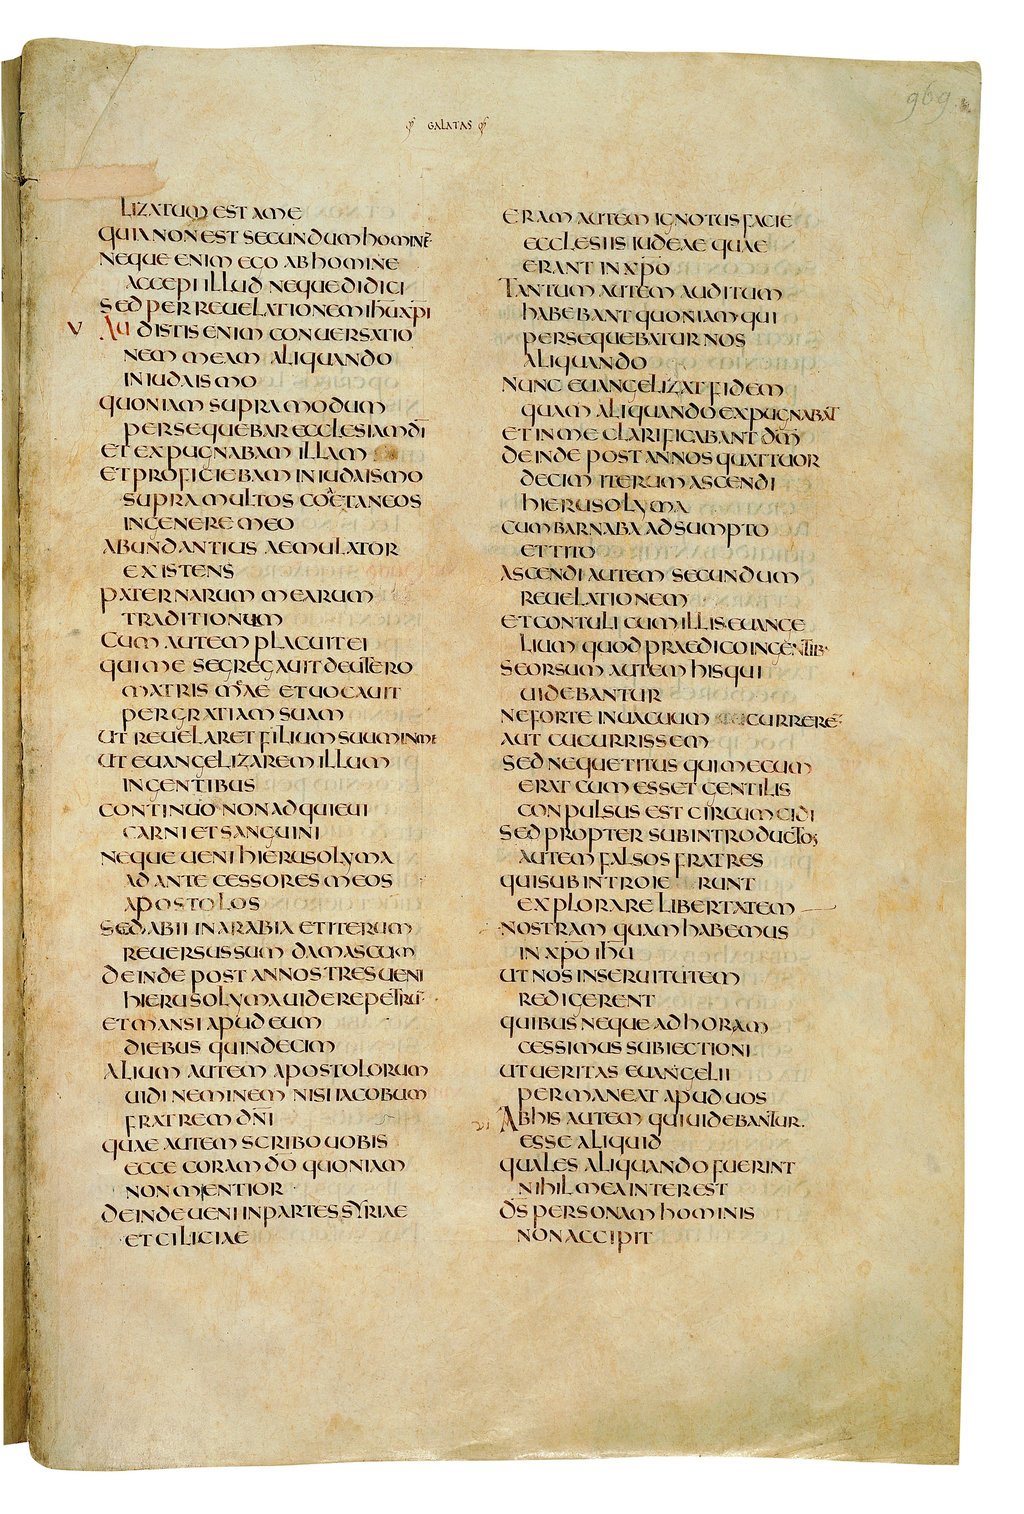 GALATAS
969
LIZATUM EST A ME
QUIA NON EST SECUNDUM HOMINĒ
NEQUE ENIM EGO AB HOMINE
ACCEPI ILLUD NEQUE DIDICI
SED PER REUELATIONEM IHU XPI
V AUDISTIS ENIM CONUERSATIO
NEM MEAM ALIQUANDO
IN IUDAISMO
QUONIAM SUPRA MODUM
PERSEQUEBAR ECCLESIAM DI
ET EXPUGNABAM ILLAM
ET PROFICIEBAM IN IUDAISMO
SUPRA MULTOS COETANEOS
IN GENERE MEO
ABUNDANTIUS AEMULATOR
EXISTENS
PATERNARUM MEARUM
TRADITIONUM
CUM AUTEM PLACUIT EI
QUI ME SEGREGAUIT DE UTERO
MATRIS MEAE ET UOCAUIT
PER GRATIAM SUAM
UT REUELARET FILIUM SUUM IN ME
UT EUANGELIZAREM ILLUM
IN GENTIBUS
CONTINUO NON ADQUIEUI
CARNI ET SANGUINI
NEQUE UENI HIERUSOLYMA
AD ANTECESSORES MEOS
APOSTOLOS
SED ABII IN ARABIA ET ITERUM
REUERSUS SUM DAMASCUM
DEINDE POST ANNOS TRES UENI
HIERUSOLYMA UIDERE PETRŪ
ET MANSI APUD EUM
DIEBUS QUINDECIM
ALIUM AUTEM APOSTOLORUM
UIDI NEMINEM NISI IACOBUM
FRATREM DNI
QUAE AUTEM SCRIBO UOBIS
ECCE CORAM DO QUONIAM
NON MENTIOR
DEINDE UENI IN PARTES SYRIAE
ET CILICIAE
ERAM AUTEM IGNOTUS FACIE
ECCLESIIS IUDEAE QUAE
ERANT IN XPO
TANTUM AUTEM AUDITUM
HABEBANT QUONIAM QUI
PERSEQUEBATUR NOS
ALIQUANDO
NUNC EUANGELIZAT FIDEM
QUAM ALIQUANDO EXPUGNABAT
ET IN ME CLARIFICABANT DM
DEINDE POST ANNOS QUATTUOR
DECIM ITERUM ASCENDI
HIERUSOLYMA
CUM BARNABA ADSUMPTO
ET TITO
ASCENDI AUTEM SECUNDUM
REUELATIONEM
ET CONTULI CUM ILLIS EUANGE
LIUM QUOD PRAEDICO IN GENTIB·
SEORSUM AUTEM HIS QUI
UIDEBANTUR
NE FORTE IN UACUUM CURRERE
AUT CUCURRISSEM
SED NEQUE TITUS QUI MECUM
ERAT CUM ESSET GENTILIS
CONPULSUS EST CIRCUMCIDI
SED PROPTER SUBINTRODUCTOS
AUTEM FALSOS FRATRES
QUI SUBINTROIE RUNT
EXPLORARE LIBERTATEM
NOSTRAM QUAM HABEMUS
IN XPO IHU
UT NOS IN SERUITUTEM
REDIGERENT
QUIBUS NEQUE AD HORAM
CESSIMUS SUBIECTIONI
UT UERITAS EUANGELII
PERMANEAT APUD UOS
VI AB HIS AUTEM QUI UIDEBANTUR
ESSE ALIQUID
QUALES ALIQUANDO FUERINT
NIHIL MEA INTEREST
DS PERSONAM HOMINIS
NON ACCIPIT